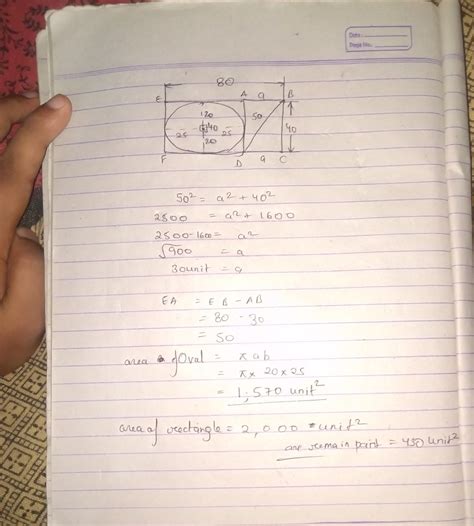 Date:
Page No.
80
E A a B
120
50
25 40 25
40
20
F D a C
50² = a² + 40²
2500 = a² + 1600
2500-1600 = a²
√900 = a
30unit = a
EA = EB - AB
= 80 - 30
= 50
area of Oval = πab
= π × 20 × 25
= 1,570 unit²
area of rectangle = 2,000 unit²
remain part = 430 unit²